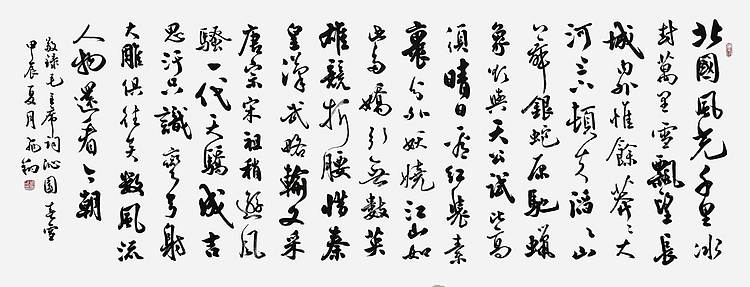 北國風光千里冰
封萬里雪飄望長
城内外惟餘莽々大
河上下頓失滔々山
舞銀蛇原馳蠟
象欲與天公試比高
須晴日看紅裝素
裹分外妖嬈江山如
此多嬌引無數英
雄競折腰惜秦
皇漢武略輸文采
唐宗宋祖稍遜風
騷一代天驕成吉
思汗只識彎弓射
大雕俱往矣數風流
人物還看今朝
敬録毛主席詞沁園春雪
甲辰夏月